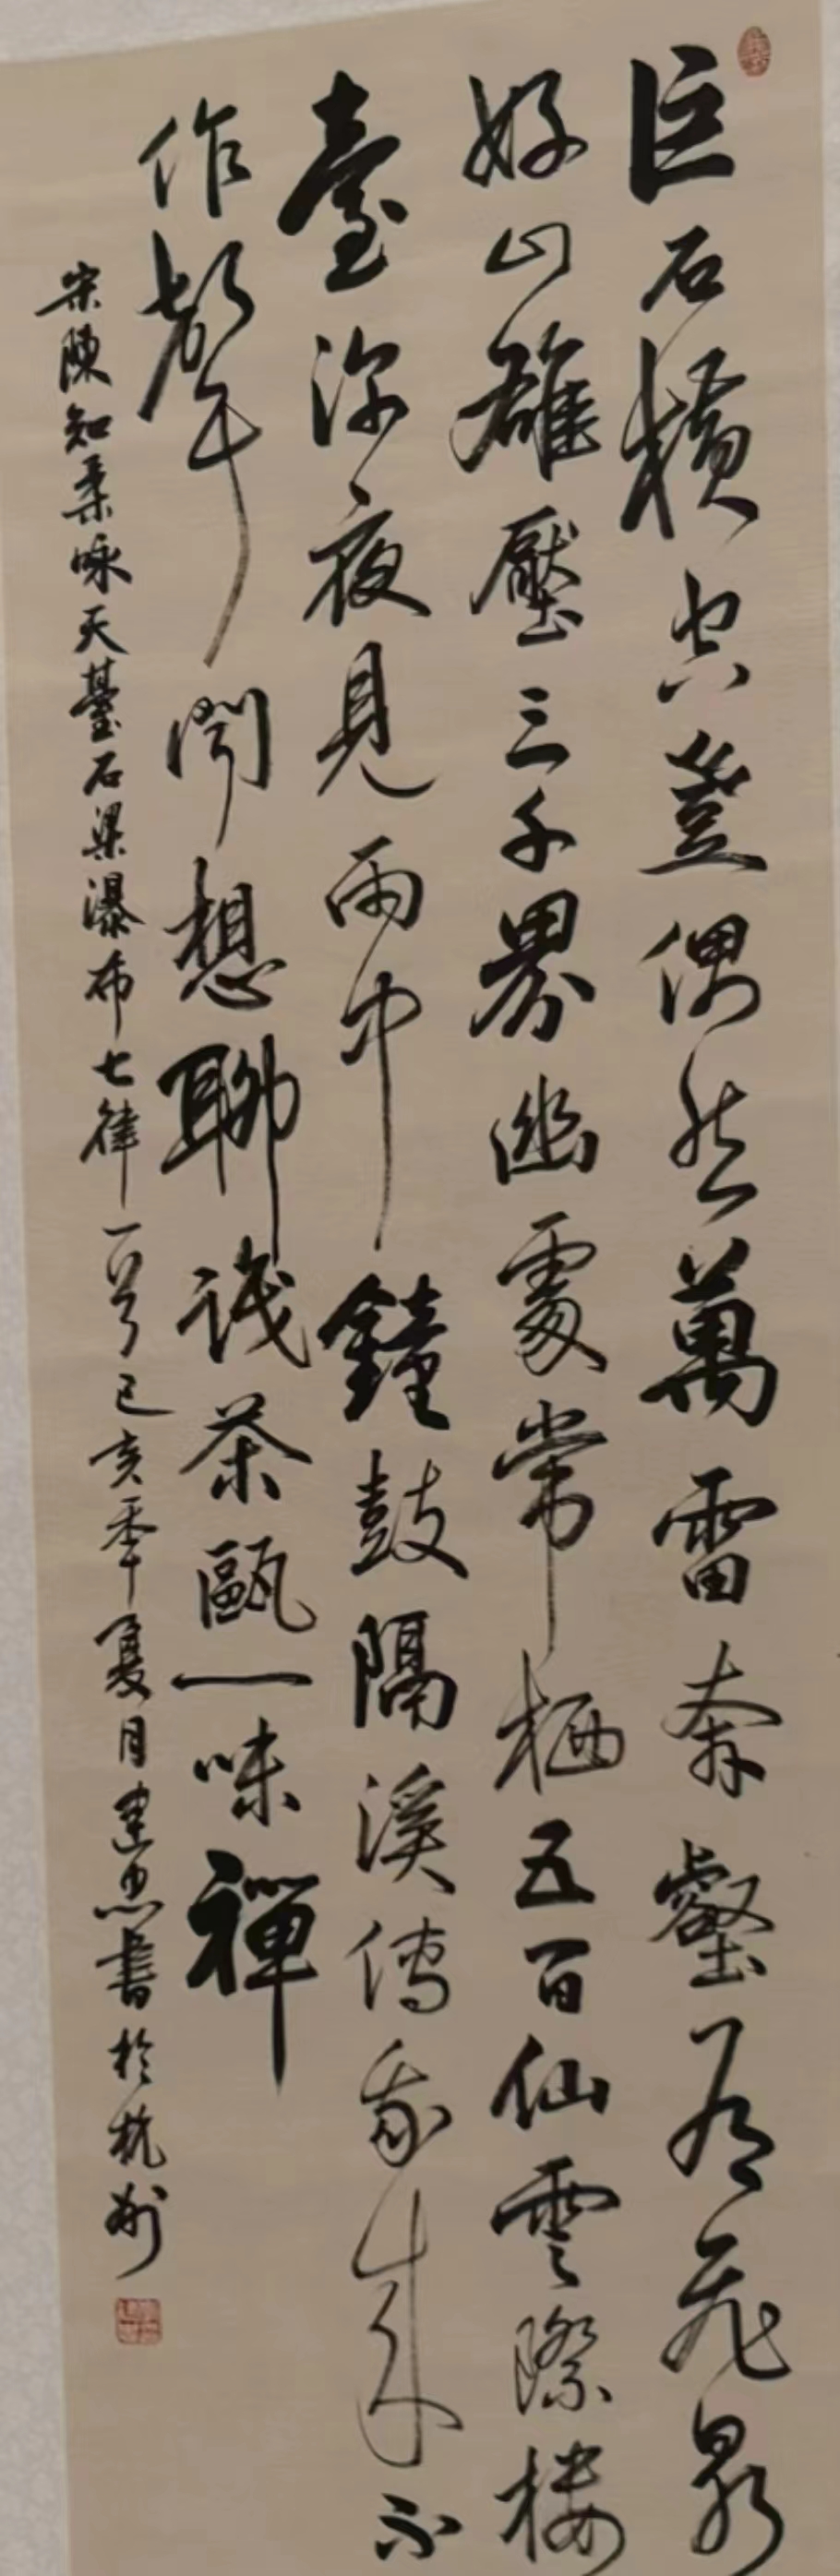 巨石橫空豈偶然萬雷奔壑有飛泉
好山雄壓三千界幽處常栖五百仙雲際樓
臺深夜見雨中鐘鼓隔溪傳我來不
作聲聞想聊試茶甌一味禪
宋陳知柔咏天臺石梁瀑布七律一首己亥年夏月建忠書於杭州